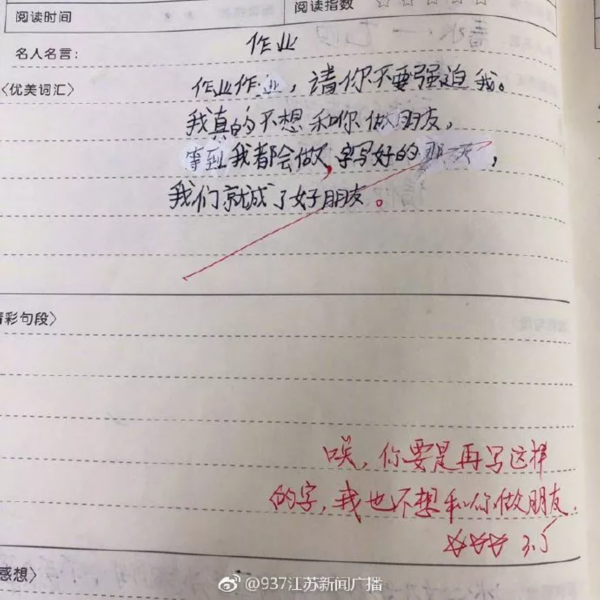 阅读时间
阅读指数 ☆☆☆☆☆
名人名言：
作业
〈优美词汇〉
作业作业，请你不要强迫我。
我真的不想和你做朋友，
等到我都会做，字写好的那天，
我们就成了好朋友。
精彩句段〉
唉，你要是再写这样
的字，我也不想和你做朋友。
☆☆☆ 3.5
感想〉
@937江苏新闻广播